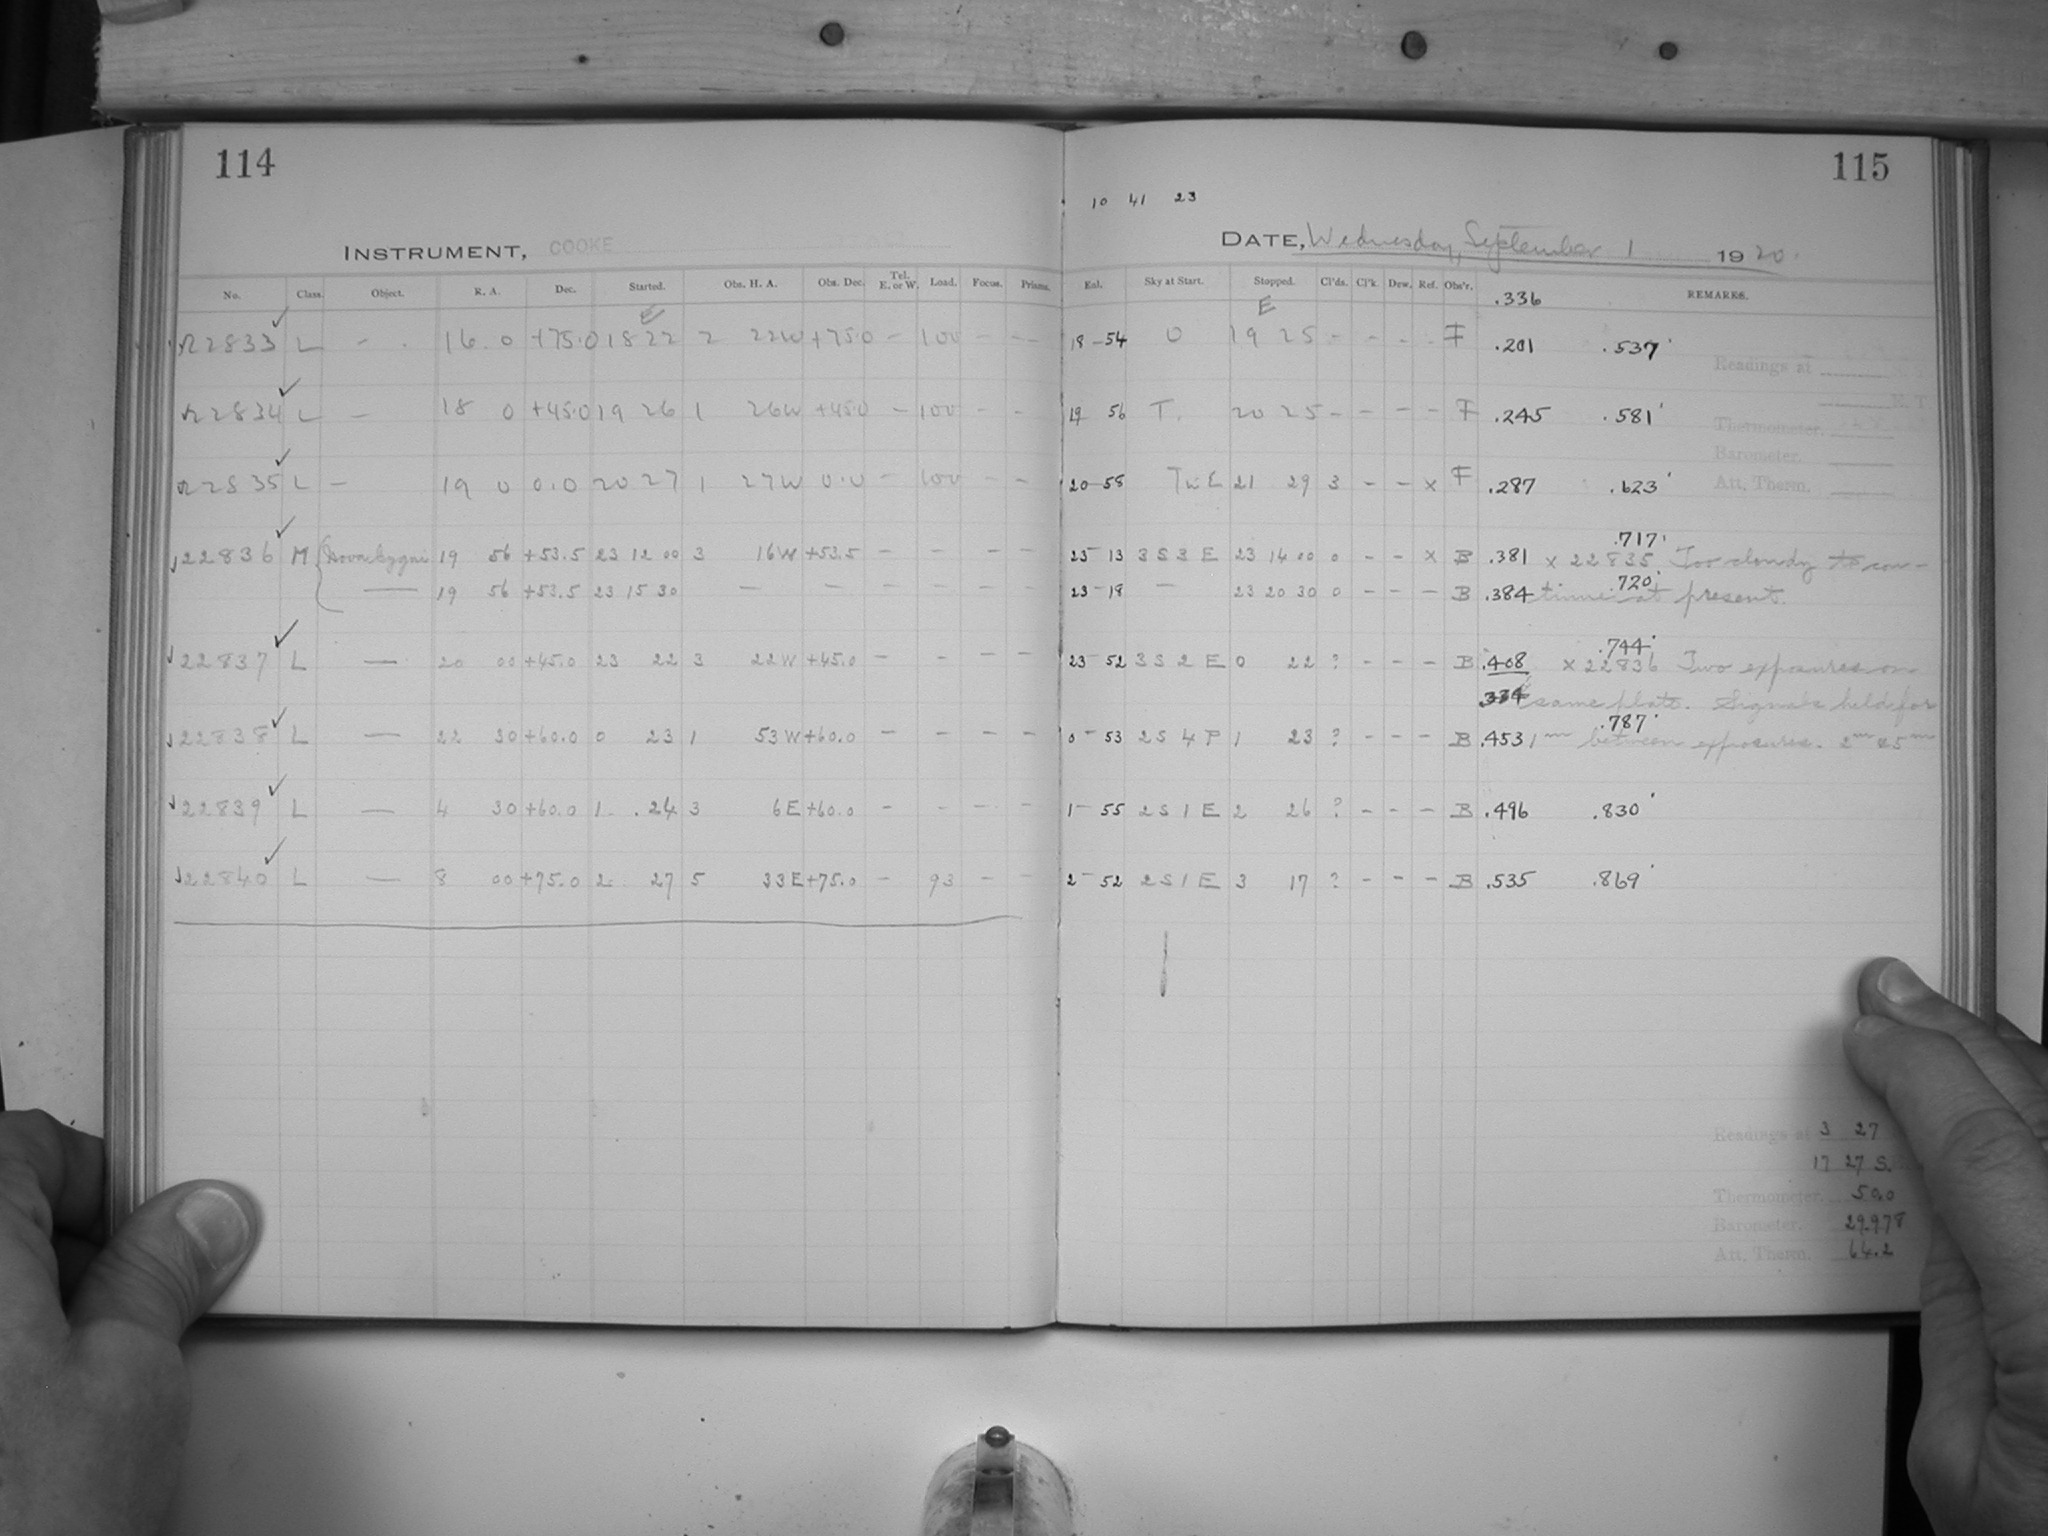 114
115
10 41 23
INSTRUMENT, COOKE
DATE, Wednesday, September 1 1920.
No. Class. Object. R. A. Dec. Started. Obs. H. A. Obs. Dec. Tel. E. or W. Load. Focus. Prisms. Eql. Sky at Start. Stopped. Cl'ds. Cl'k. Dew. Ref. Obs'r. .336 REMARKS.
E E
22833 L - 16 0 +75.0 18 22 2 22W +75.0 - 100 - - 18-54 U 19 25 - - - - F .201 .537
Readings at
22834 L - 18 0 +45.0 19 26 1 26W +45.0 - 100 - - 19 56 T. 20 25 - - - - F .245 .581
Thermometer.
Barometer.
22835 L - 19 0 0.0 20 27 1 27W 0.0 - 100 - - 20-58 21 29 3 - - x F .287 .623
Att. Therm.
.717
22836 M Nova Cygni 19 56 +53.5 23 12 00 3 16W +53.5 - - - - 23-13 3 S 3 E 23 14 00 0 - - x B .381 x 22835 Too cloudy to con-
.720
— 19 56 +53.5 23 15 30 — — - - - - 23-18 — 23 20 30 0 - - - B .384 tinue at present.
.744
22837 L — 20 00 +45.0 23 22 3 22W +45.0 - - - - 23-52 3 S 2 E 0 22 ? - - - B .408 x 22836 Two exposures on
334 same plate. Signals held for
.787
22838 L — 22 30 +60.0 0 23 1 53W +60.0 - - - - 0-53 2 S 4 P 1 23 ? - - - B .453 1m between exposures. 2m & 5m
22839 L — 4 30 +60.0 1 24 3 6E +60.0 - - - - 1-55 2 S 1 E 2 26 ? - - - B .496 .830
22840 L — 8 00 +75.0 2 27 5 33E +75.0 - 93 - - 2-52 2 S 1 E 3 17 ? - - - B .535 .869
Readings at 3 27
17 27 S.
Thermometer. 50.0
Barometer. 29.978
Att. Therm. 64.2